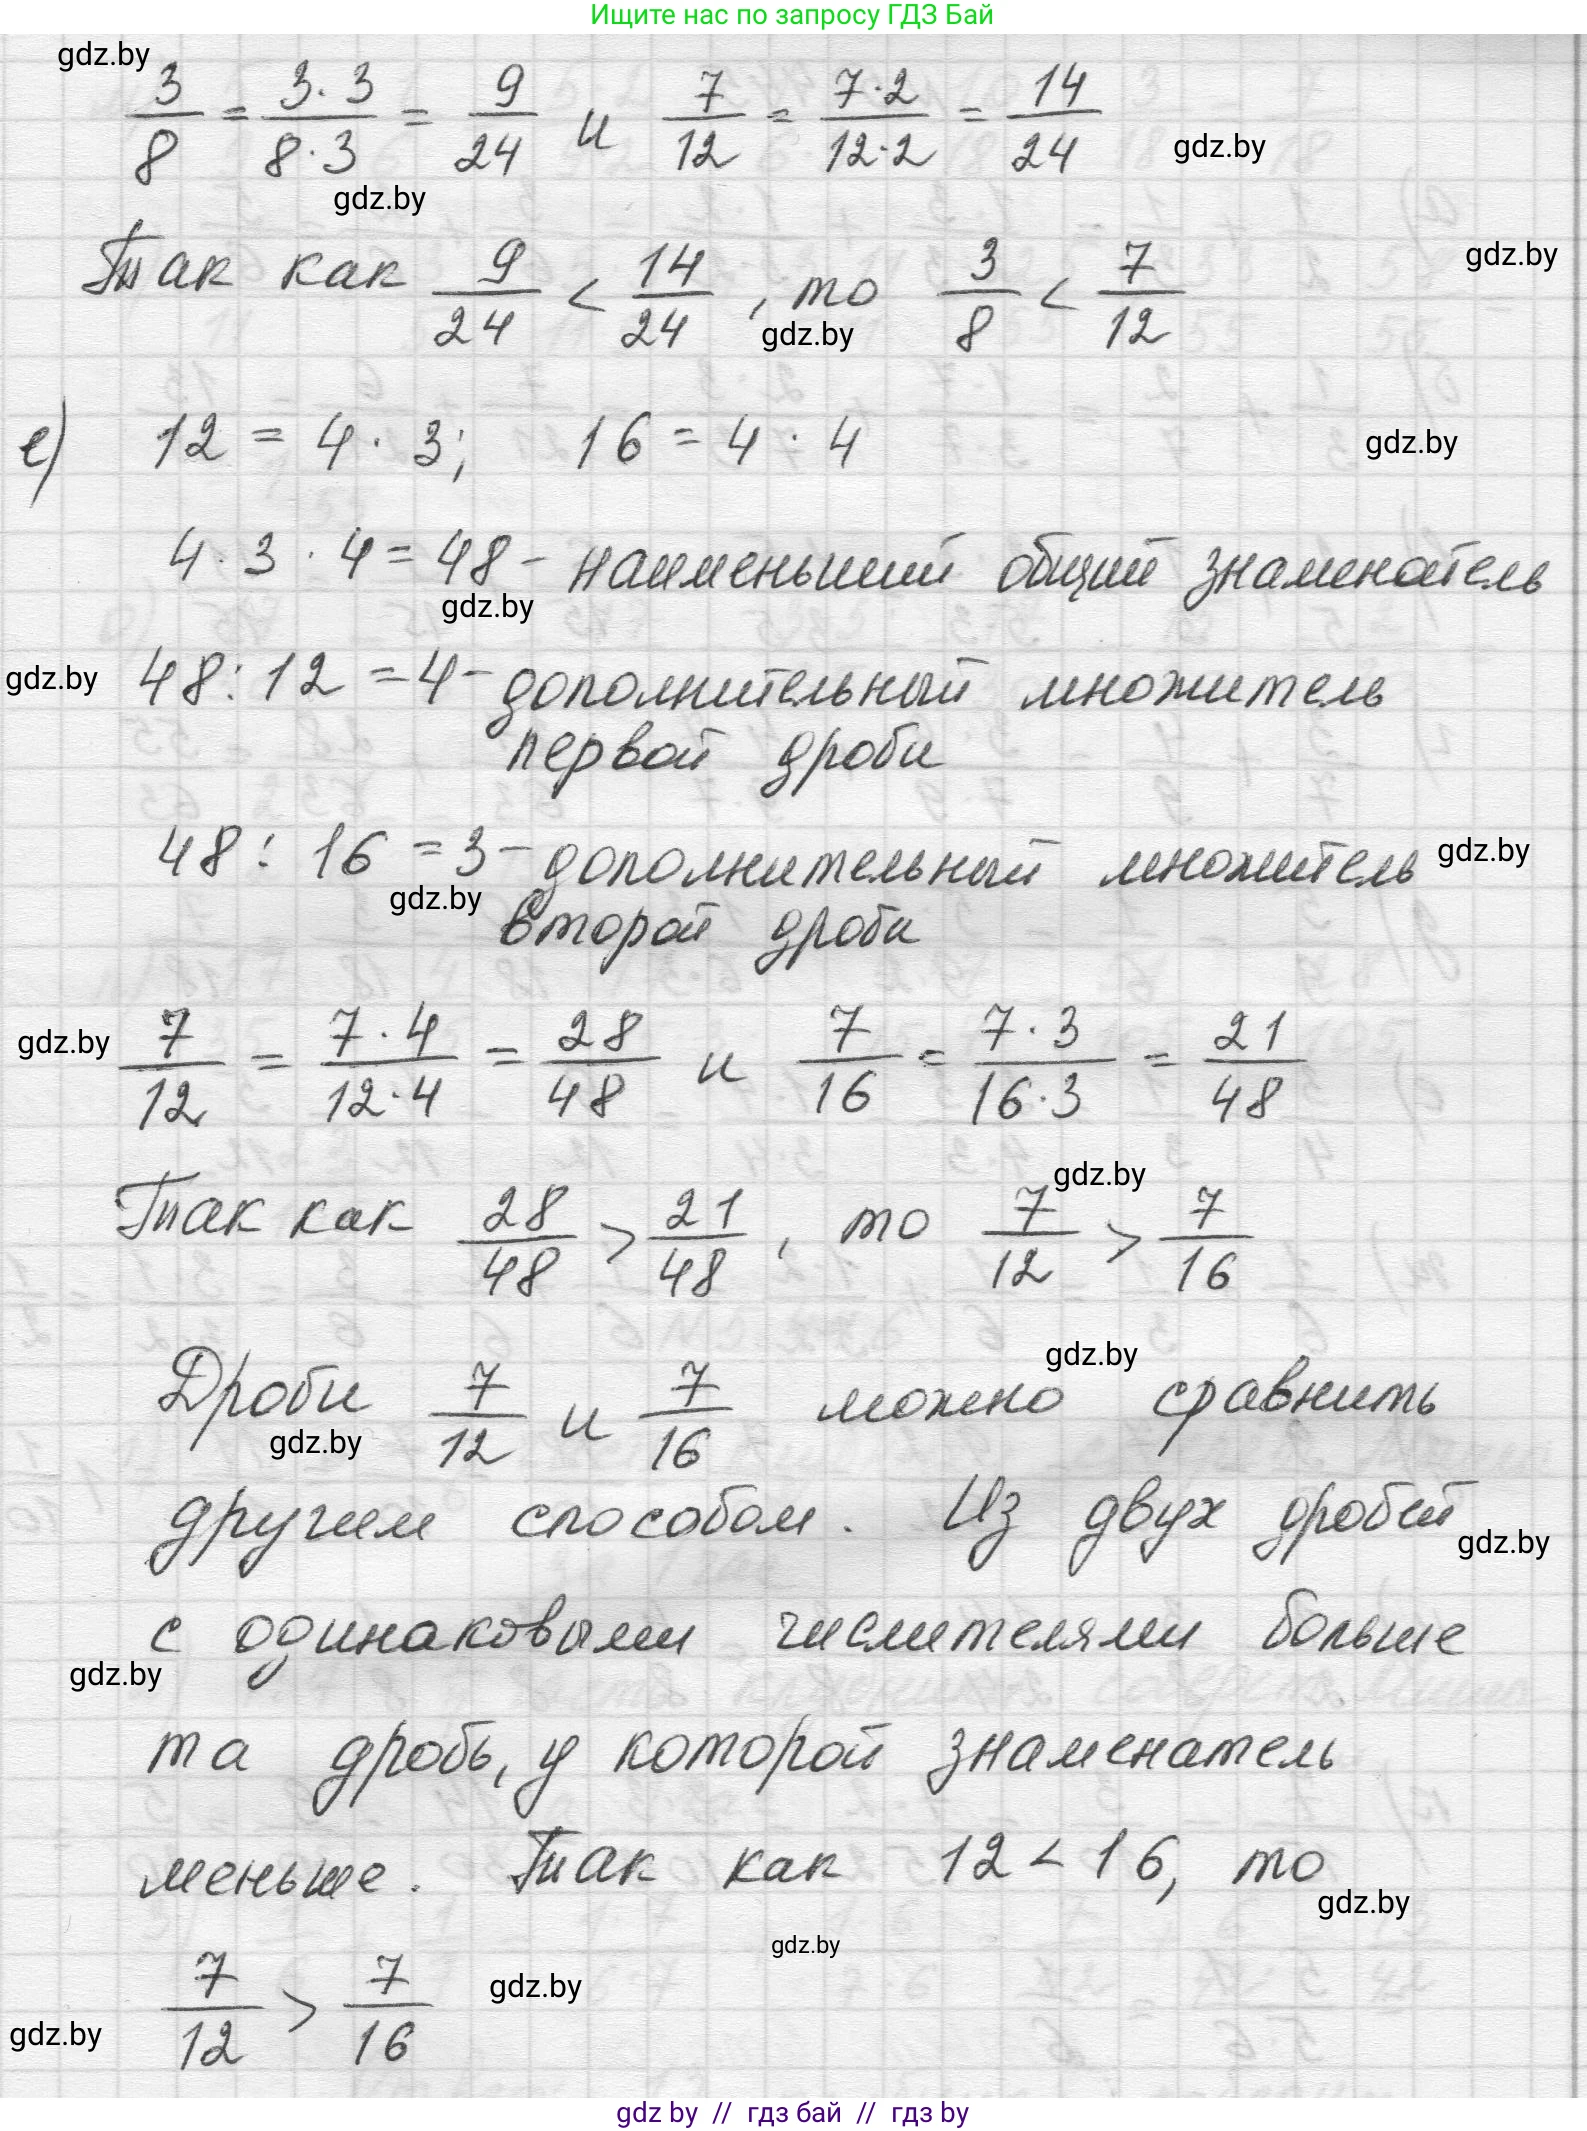 Ищите нас по запросу ГДЗ Бай
gdz.by
3/8 = 3·3/8·3 = 9/24 и 7/12 = 7·2/12·2 = 14/24
gdz.by
gdz.by
Так как 9/24 < 14/24, то 3/8 < 7/12
gdz.by
gdz.by
е) 12 = 4·3; 16 = 4·4
gdz.by
4·3·4 = 48 – наименьший общий знаменатель
gdz.by
gdz.by
48:12 = 4 – дополнительный множитель
первой дроби
48:16 = 3 – дополнительный множитель
gdz.by
gdz.by
второй дроби
gdz.by
7/12 = 7·4/12·4 = 28/48 и 7/16 = 7·3/16·3 = 21/48
gdz.by
Так как 28/48 > 21/48, то 7/12 > 7/16
gdz.by
Дроби 7/12 и 7/16 можно сравнить
gdz.by
другим способом. Из двух дробей
gdz.by
с одинаковыми числителями больше
gdz.by
та дробь, у которой знаменатель
меньше. Так как 12 < 16, то
gdz.by
gdz.by
7/12 > 7/16
gdz.by
gdz.by
gdz by // гдз бай // gdz.by